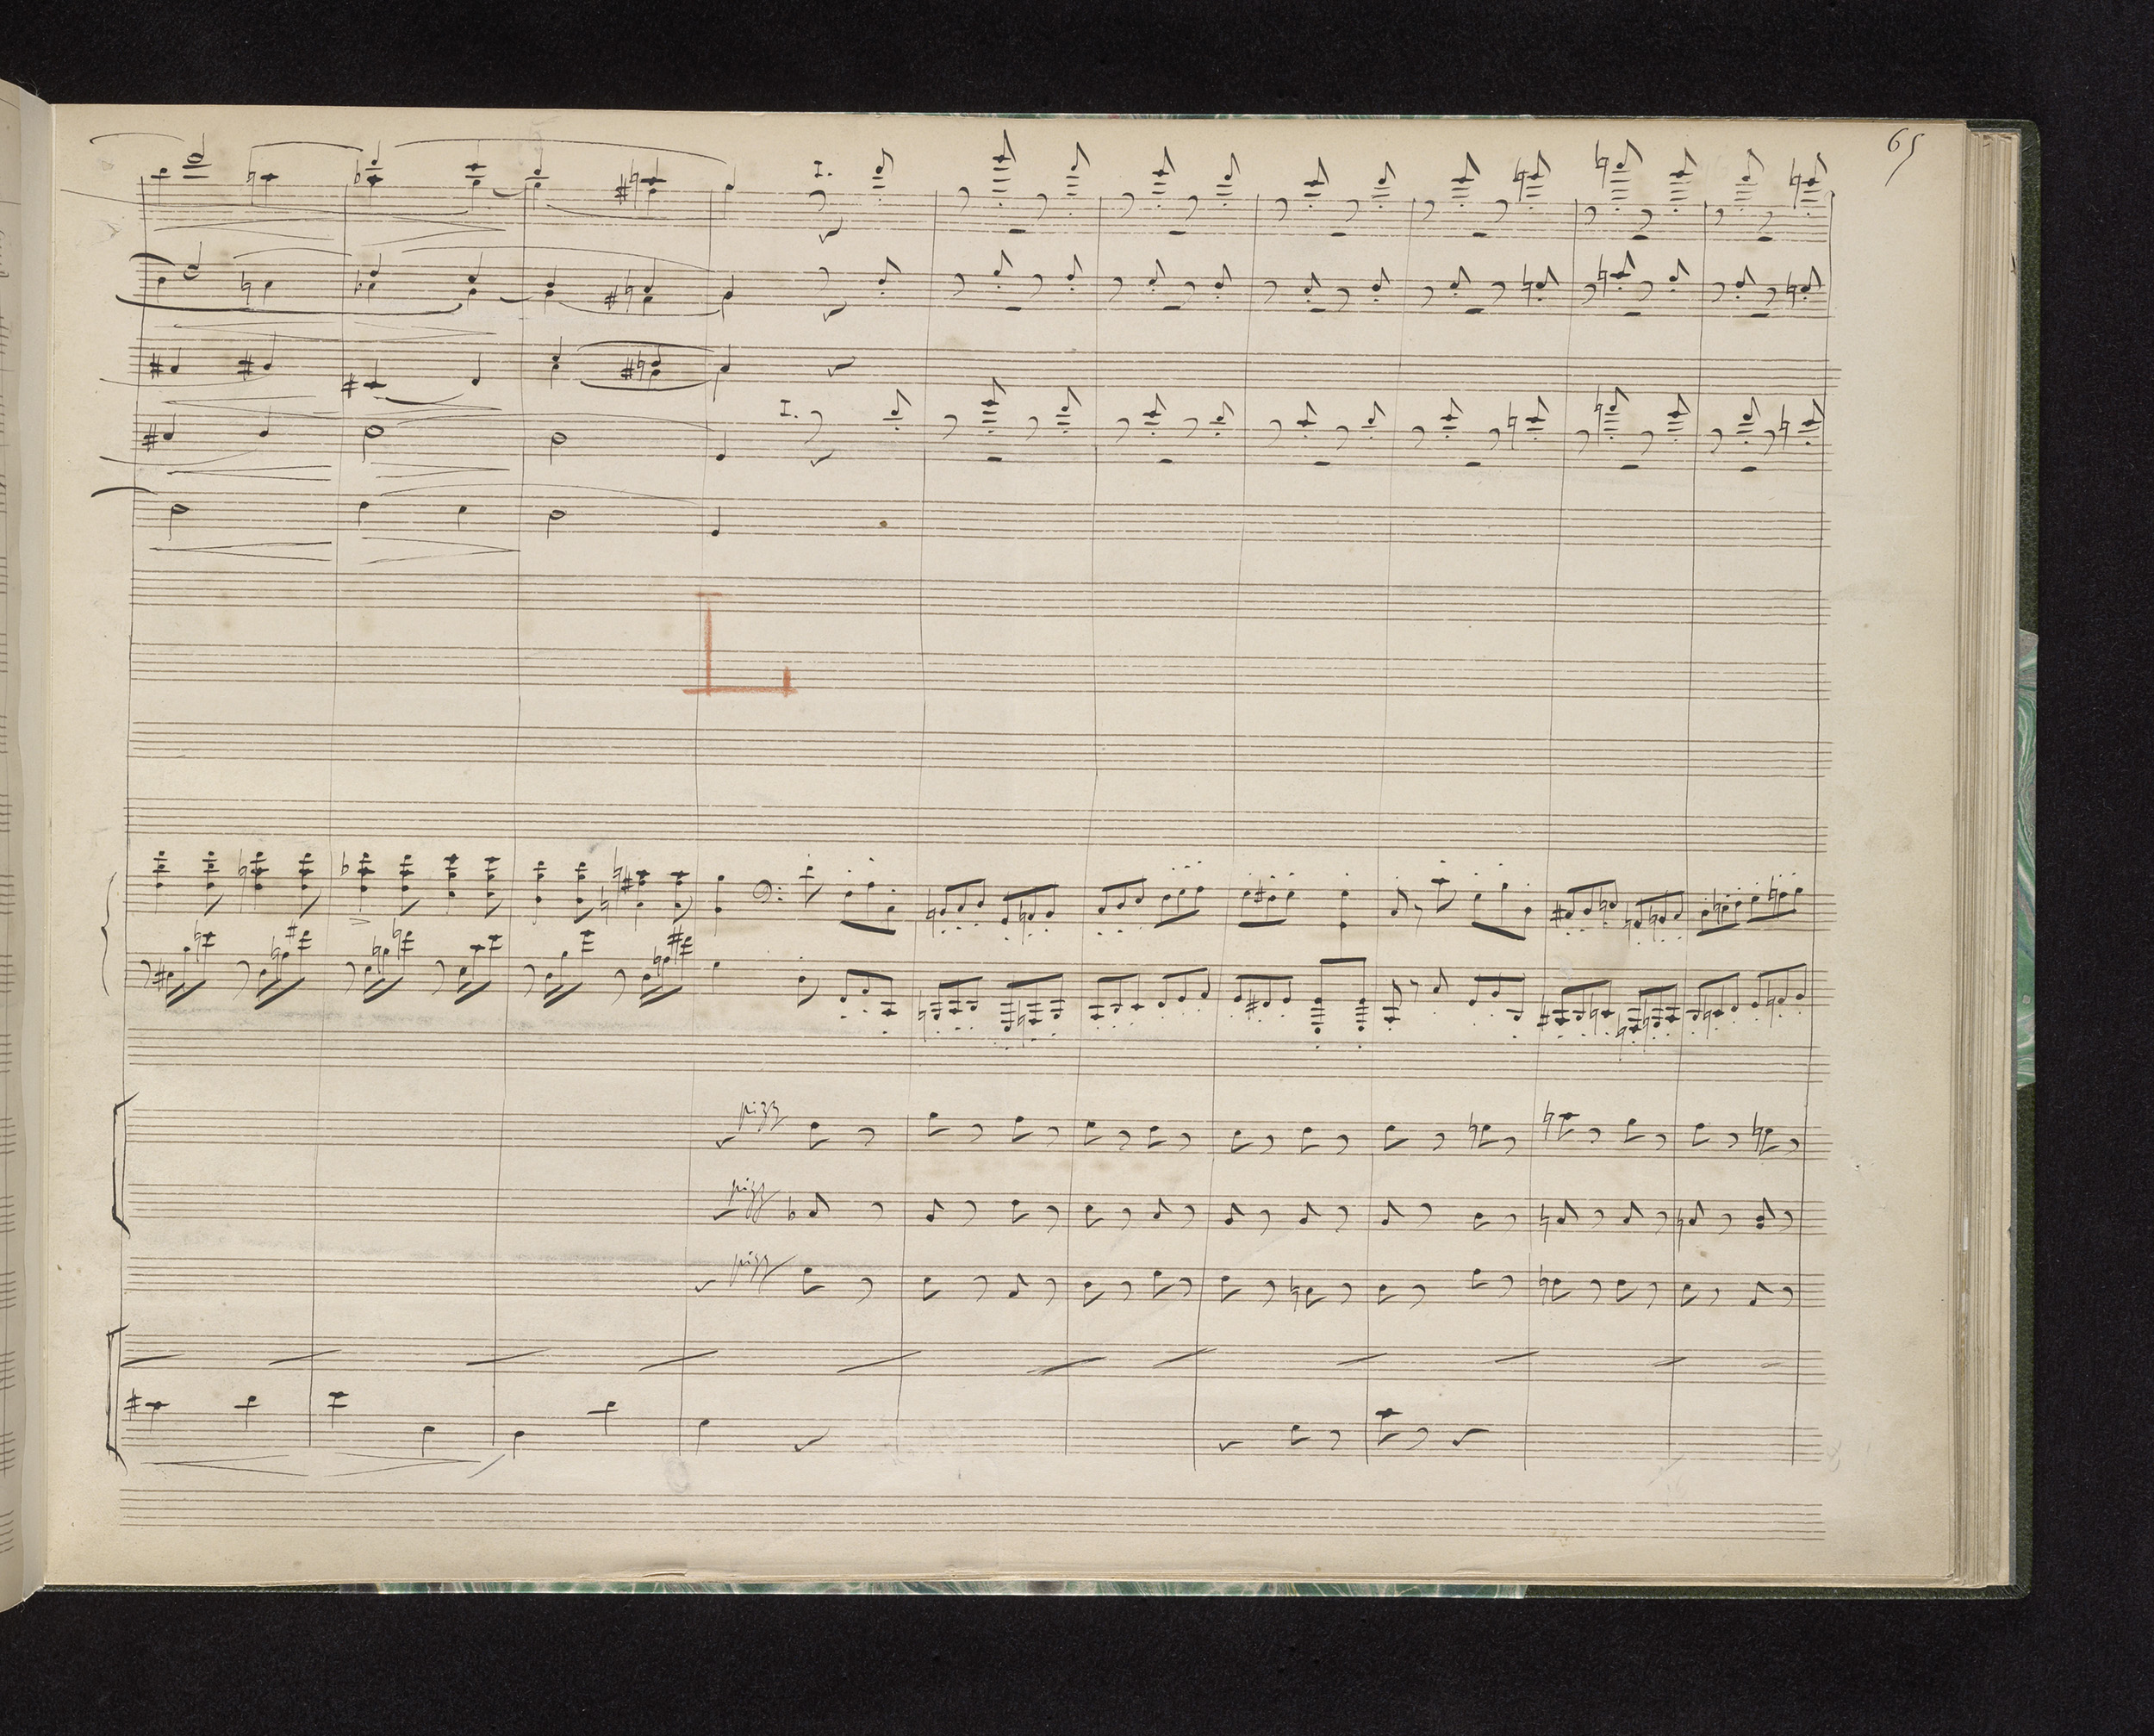 65
I.
I.
L
pizz
pizz
pizz